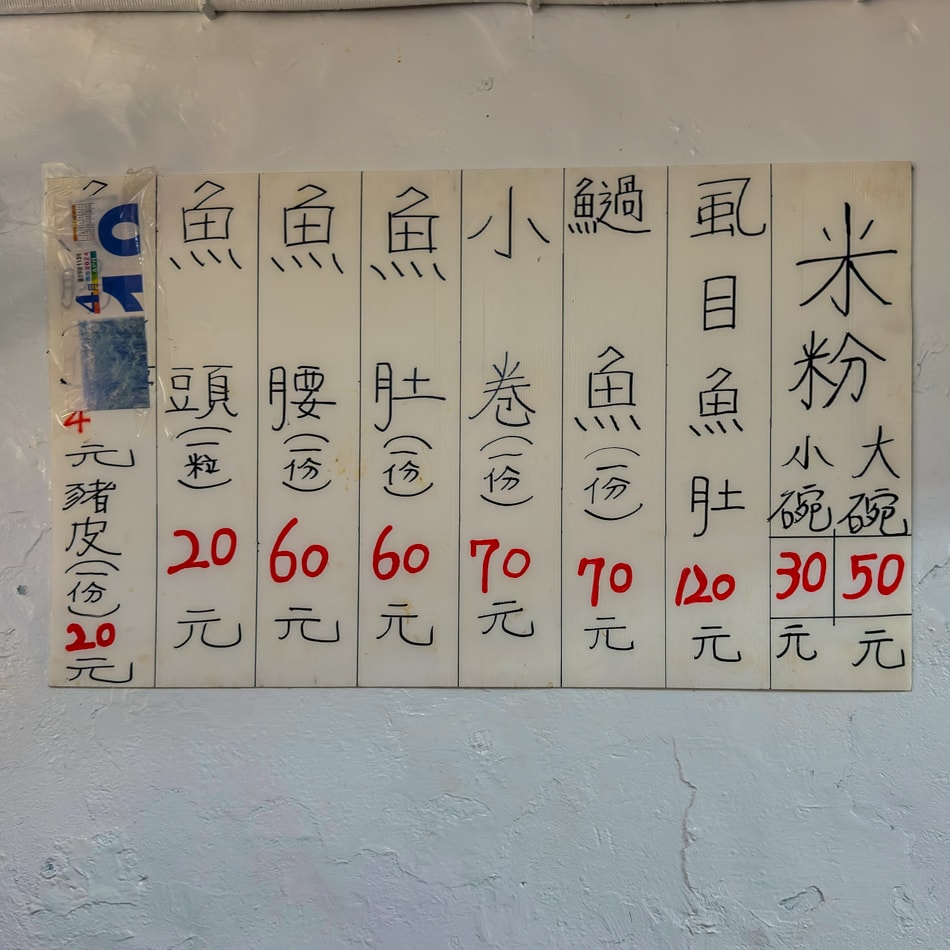 米粉
大碗 50 元
小碗 30 元
虱目魚肚 120 元
鱵魚(一份) 70 元
小卷(一份) 70 元
魚肚(一份) 60 元
魚腰(一份) 60 元
魚頭(一粒) 20 元
元
豬皮(一份) 20 元
4月